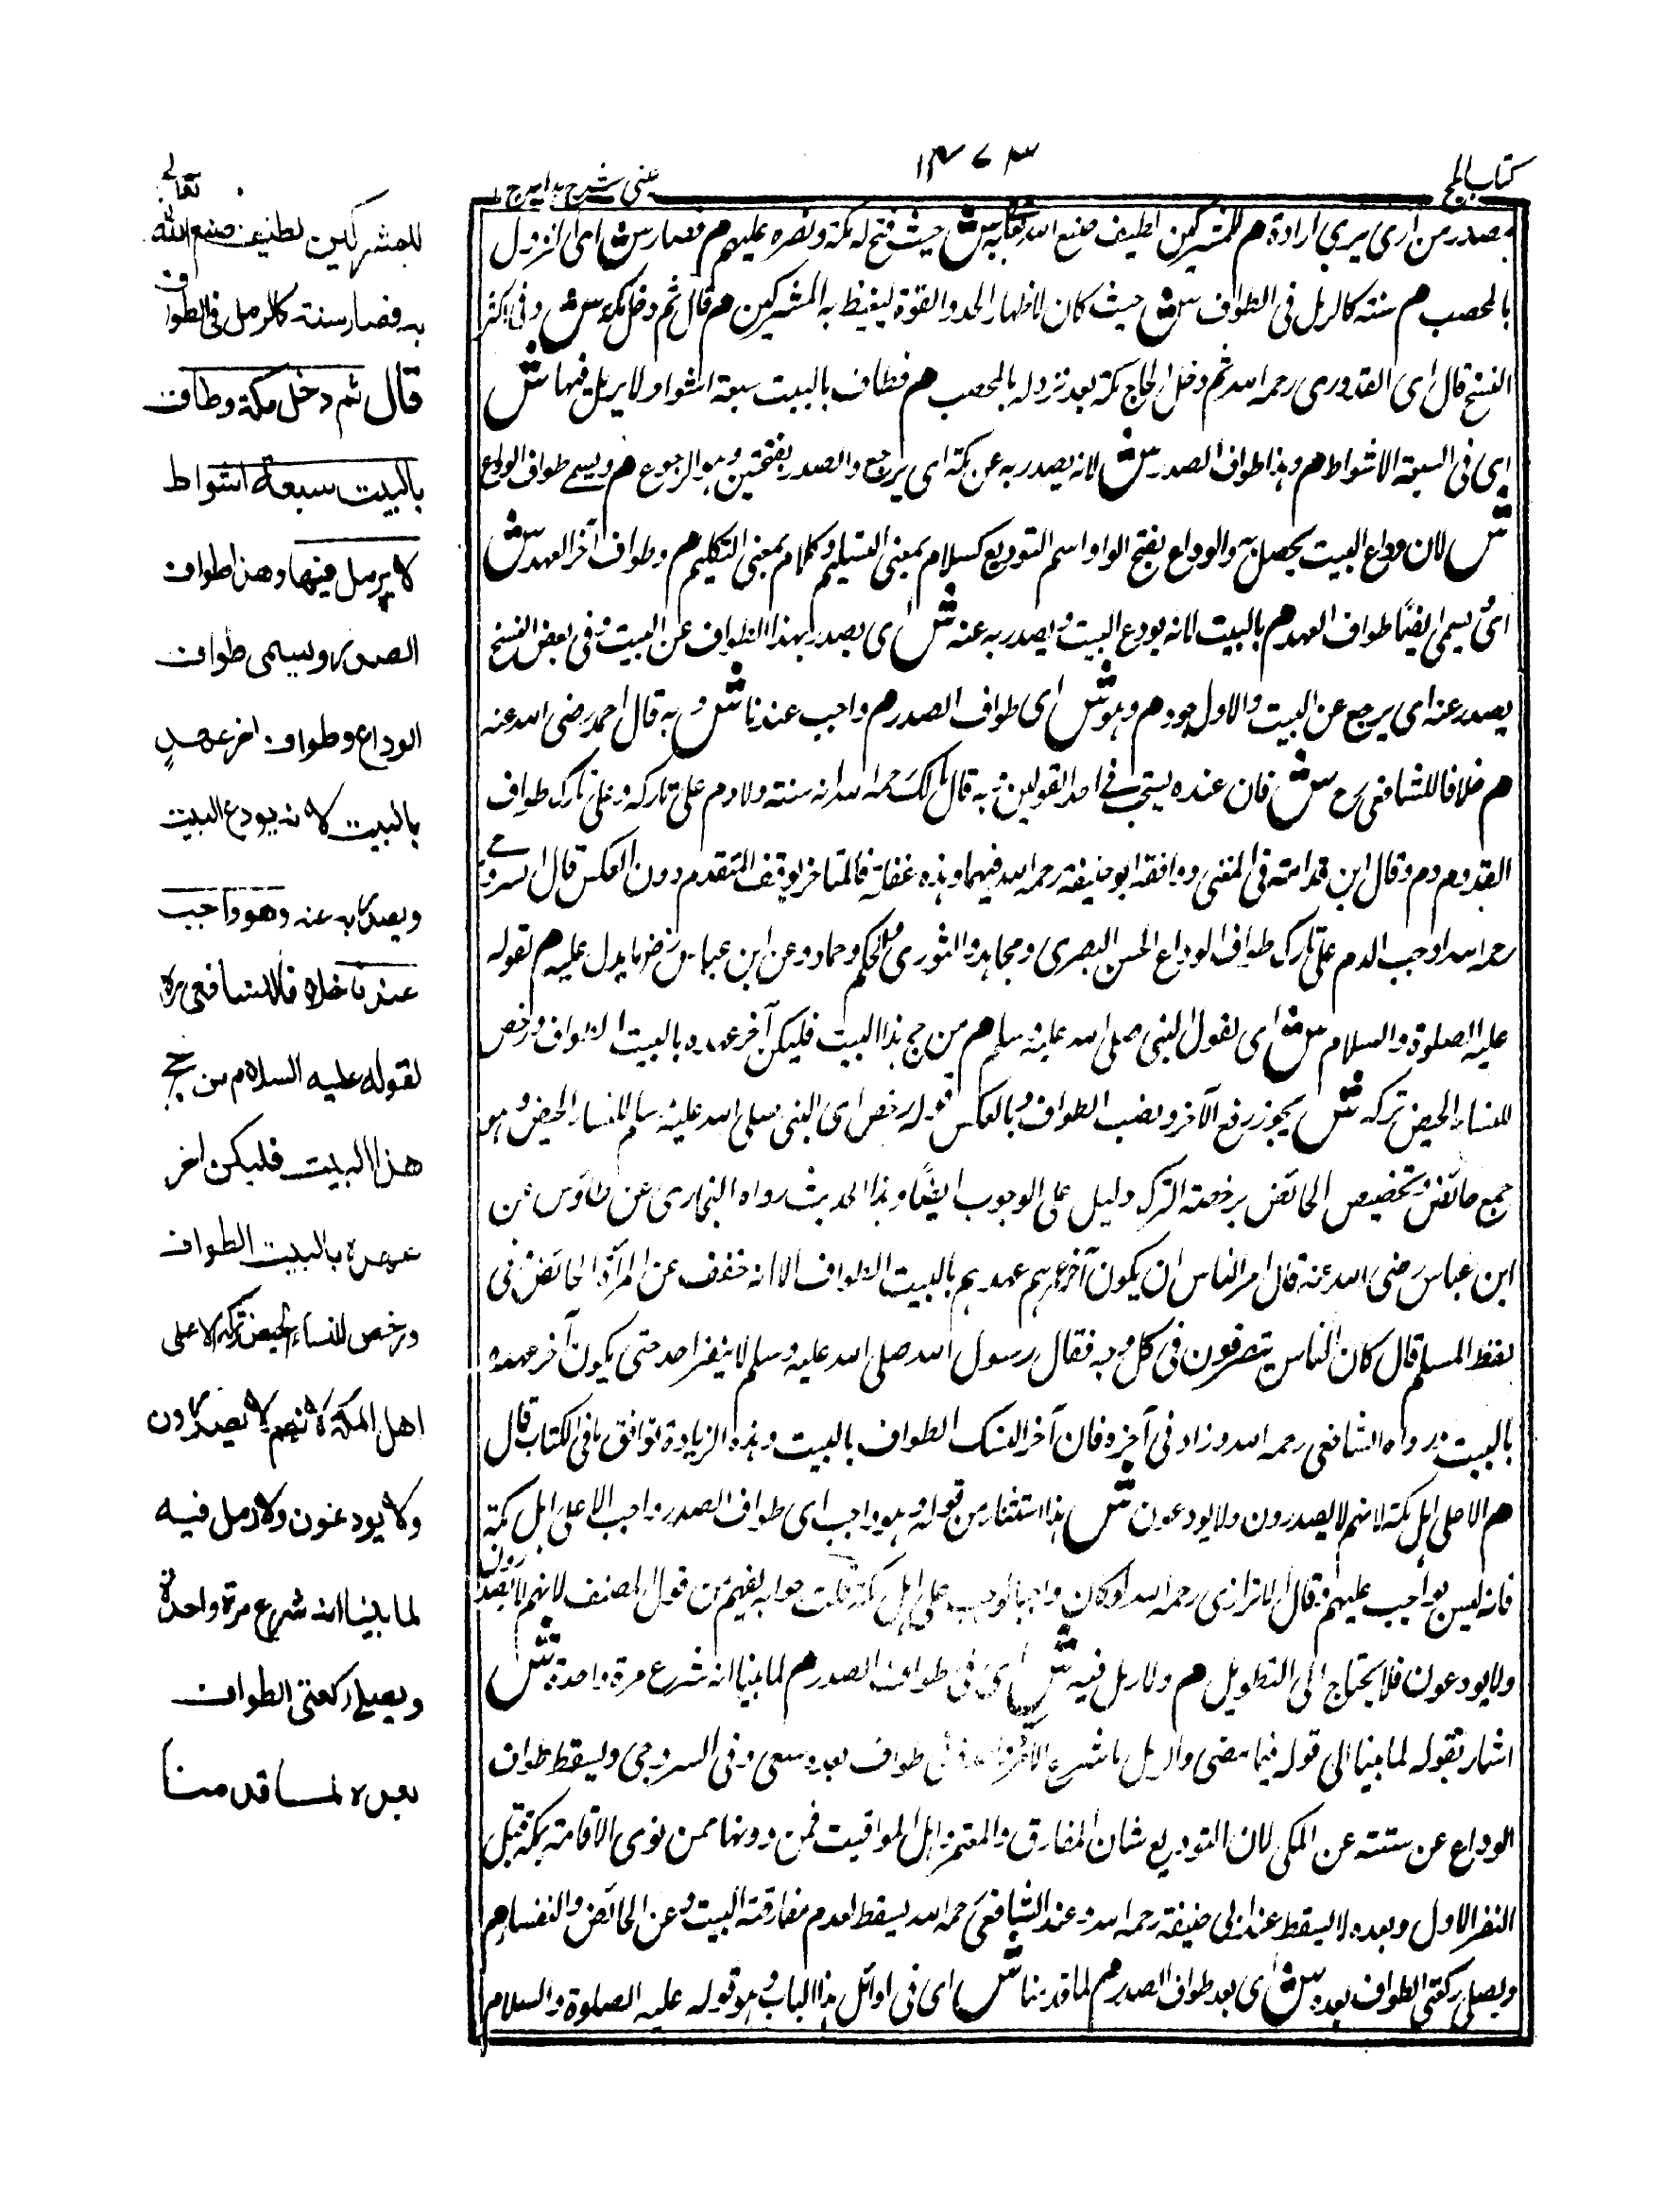 كتاب الحج
١٣٧٣
عينى شرح هدايه ج ١
مصدر من ارى يرى اراءة م للمشركين لطيف صنع الله تعالى به ش حيث فتح له مكة ونصره عليهم م فصار ش اى النزول
بالمحصب م سنة كالرمل فى الطواف ش حيث كان لاظهار الجلد والقوة ليغيظ به المشركين م قال ثم دخل مكة ش وفى اكثر
النسخ قال اى القدورى رحمه الله ثم دخل الحاج مكة بعد نزوله بالمحصب م فطاف بالبيت سبعة اشواط ولا يرمل فيها ش
اى فى السبعة الاشواط م وهذا طواف الصدر ش لانه يصدر به عن مكة اى يرجع والصدر بفتحتين وهو الرجوع م ويسمى طواف الوداع
ش لان وداع البيت يحصل به والوداع بفتح الواو اسم التوديع كسلام بمعنى التسليم وكلام بمعنى التكليم م وطواف آخر العهد ش
اى يسمى ايضًا طواف العهد م بالبيت لانه يودع البيت ويصدر به عنه ش اى يصدر بهذا الطواف عن البيت وفى بعض النسخ
يصدر عنه اى يرجع عن البيت والاول اجود م وهو ش اى طواف الصدر م واجب عندنا ش وبه قال احمد رضى الله عنه
م خلافا للشافعى رح ش فان عنده يستحب فى احد القولين وبه قال مالك رحمه الله انه سنة ولا دم على تاركه وعلى تارك طواف
القدوم دم وقال ابن قدامة فى المغنى ووافقه ابو حنيفة رحمه الله فيهما وهذه غفلة فالمتاخر يوقف المتقدم دون العكس قال السروجى
رحمه الله اوجب الدم على تارك طواف الوداع الحسن البصرى ومجاهد والثورى والحكم وحماد وعن ابن عباس رض ما يدل عليه م لقوله
عليه الصلوة والسلام ش اى لقول النبى صلى الله عليه وسلم م من حج هذا البيت فليكن آخر عهده بالبيت الطواف ورخص
للنساء الحيض تركه ش يجوز رفع الآخر ونصب الطواف وبالعكس قوله رخص اى النبى صلى الله عليه وسلم للنساء الحيض وهو
جمع حائض وتخصيص الحائض برخصة الترك دليل على الوجوب ايضًا وهذا الحديث رواه البخارى عن طاؤس عن
ابن عباس رضى الله عنه قال امر الناس ان يكون آخر عهدهم بالبيت الطواف الا انه خفف عن المرأة الحائض فى
لفظ المسلم قال كان الناس يتصرفون فى كل وجه فقال رسول الله صلى الله عليه وسلم لا ينفر احد حتى يكون آخر عهده
بالبيت ورواه الشافعى رحمه الله وزاد فى آخره فان آخر النسك الطواف بالبيت وهذه الزيادة توافق ما فى الكتاب قال
م الا على اهل مكة لانهم لا يصدرون ولا يودعون ش هذا استثناء من قوله وهو واجب اى طواف الصدر واجب الا على اهل مكة
فانه ليس بواجب عليهم وقال الاترازى رحمه الله لو كان واجبا لوجب على اهل مكة قلت جوابه يفهم من قول المصنف لانهم لا يصدرون
ولا يودعون فلا يحتاج الى التطويل م ولا رمل فيه ش اى فى طواف الصدر م لما بينا انه شرع مرة واحدة ش
اشار بقوله لما بينا الى قوله فيما مضى والرمل ما شرع الا مرة فى طواف بعده سعى وفى السروجى ويسقط طواف
الوداع عن ستة عن المكى لان التوديع شان المفارق والمعتمر واهل المواقيت فمن دونها ممن نوى الاقامة بمكة قبل
النفر الاول وبعده لا يسقط عند ابى حنيفة رحمه الله وعند الشافعى رحمه الله يسقط لعدم مفارقة البيت وعن الحائض والنفساء م
ويصلى ركعتى الطواف بعده ش اى بعد طواف الصدر م لما قدمنا ش اى فى اوائل هذا الباب وهو قوله عليه الصلوة والسلام
للمشركين لطيف صنع الله تعالى
به فصار سنة كالرمل فى الطواف
قال ثم دخل مكة وطاف
بالبيت سبعة اشواط
لا يرمل فيها وهذا طواف
الصدر ويسمى طواف
الوداع وطواف اخر عهد
بالبيت لانه يودع البيت
ويصدر به عنه وهو واجب
عندنا خلافا للشافعى ره
لقوله عليه السلام من حج
هذا البيت فليكن اخر
عهده بالبيت الطواف
ورخص للنساء الحيض تركه الا على
اهل المكة لانهم لا يصدرون
ولا يودعون ولا رمل فيه
لما بينا انه شرع مرة واحدة
ويصلى ركعتى الطواف
بعده لما قدمنا